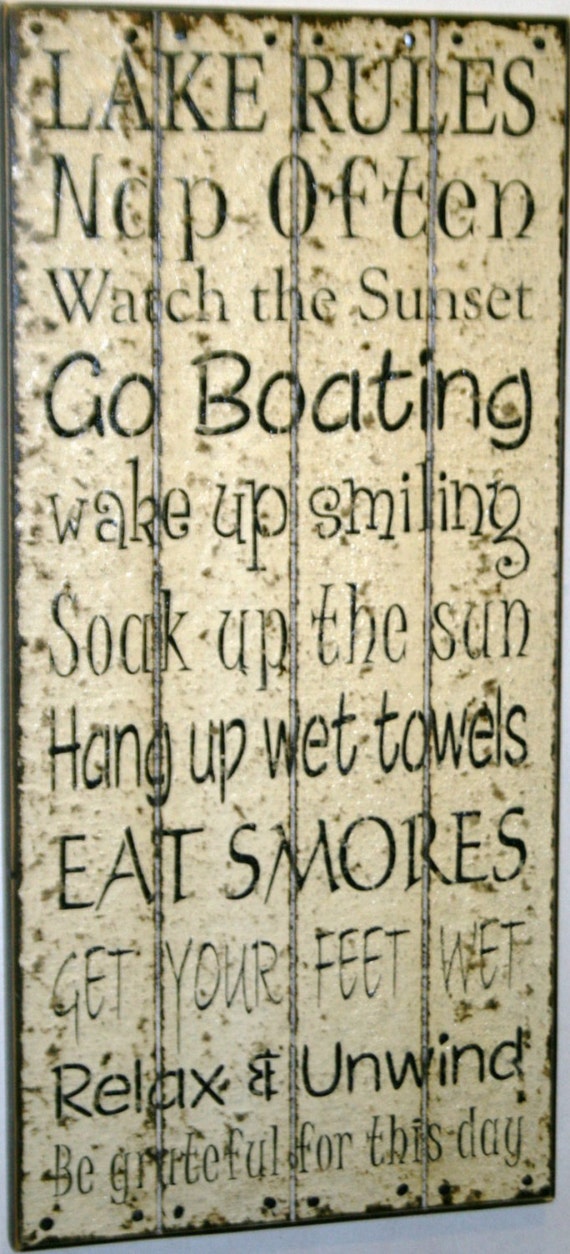 LAKE RULES
Nap Often
Watch the Sunset
Go Boating
wake up smiling
Soak up the sun
Hang up wet towels
EAT SMORES
GET YOUR FEET WET
Relax & Unwind
Be grateful for this day